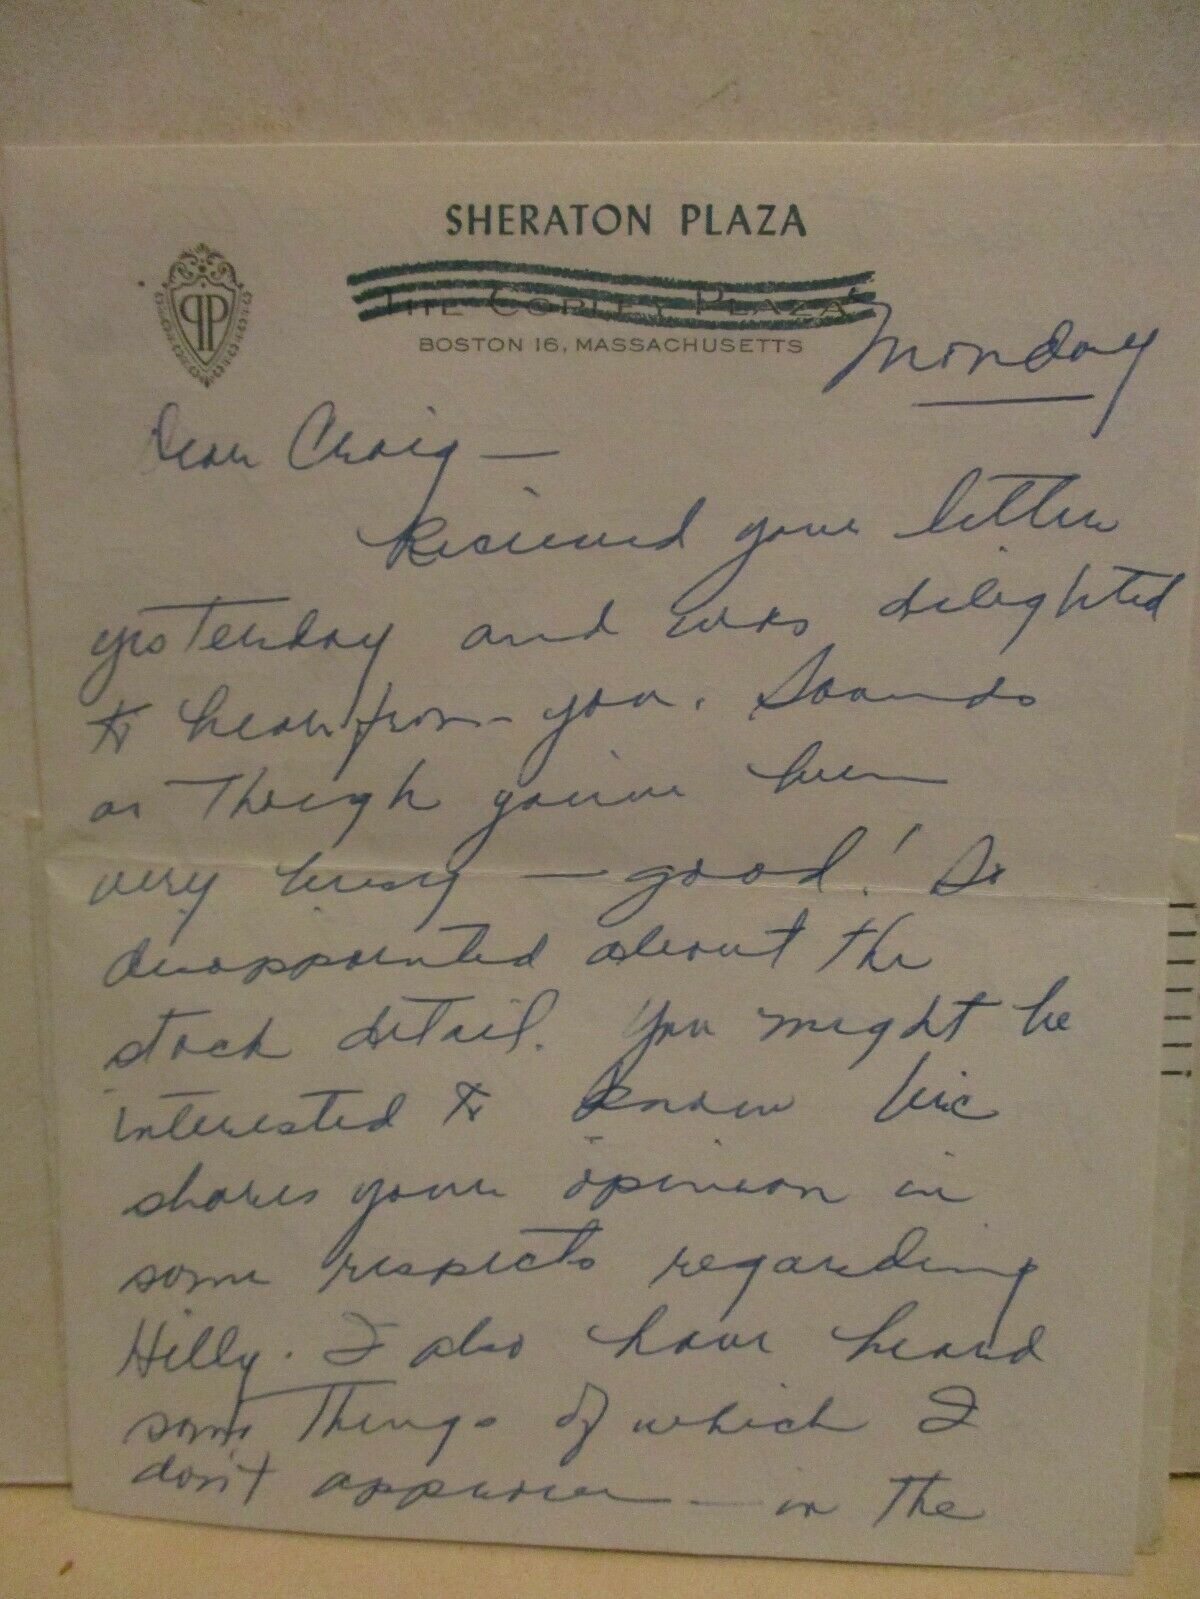 SHERATON PLAZA
THE COPLEY PLAZA
BOSTON 16, MASSACHUSETTS
Monday
Dear Craig —
Recieved your letter
yesterday and was delighted
to hear from you. Sounds
as though you've been
very busy — good! So
disappointed about the
stock detail. You might be
interested to know Vic
shares your opinion in
some respects regarding
Hilly. I also have heard
some things of which I
don't approve — in the